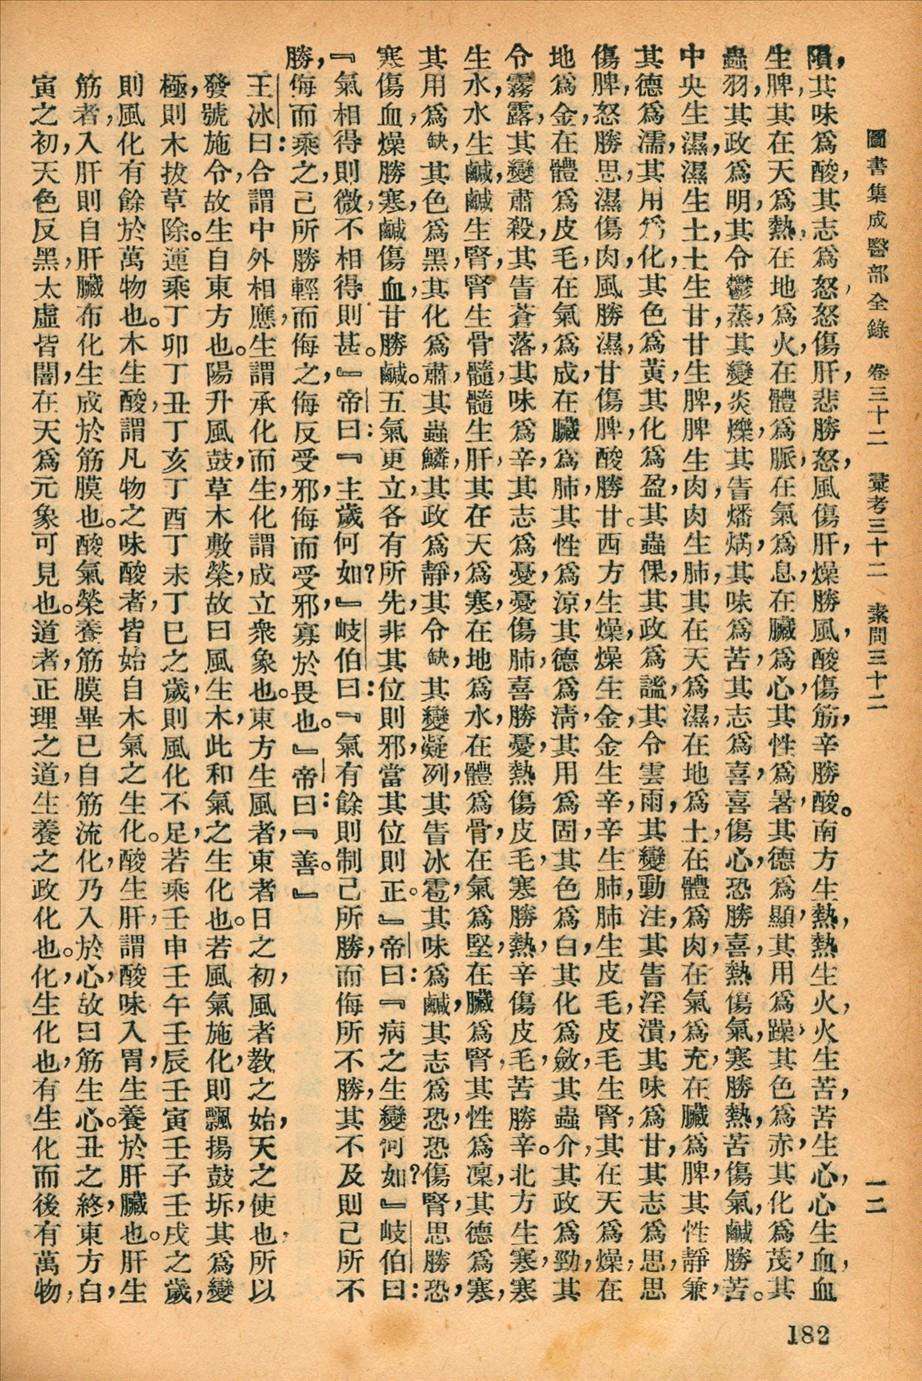 圖書集成醫部全錄　卷三十二　彙考三十二　素問三十二　一二
隕，其味爲酸，其志爲怒，怒傷肝，悲勝怒，風傷肝，燥勝風，酸傷筋，辛勝酸。南方生熱，熱生火，火生苦，苦生心，心生血，血
生脾，其在天爲熱，在地爲火，在體爲脈，在氣爲息，在臟爲心，其性爲暑，其德爲顯，其用爲躁，其色爲赤，其化爲茂，其
蟲羽，其政爲明，其令鬱蒸，其變炎爍，其眚燔焫，其味爲苦，其志爲喜，喜傷心，恐勝喜，熱傷氣，寒勝熱，苦傷氣，鹹勝苦。
中央生濕，濕生土，土生甘，甘生脾，脾生肉，肉生肺，其在天爲濕，在地爲土，在體爲肉，在氣爲充，在臟爲脾，其性靜兼，
其德爲濡，其用爲化，其色爲黃，其化爲盈，其蟲倮，其政爲謐，其令雲雨，其變動注，其眚淫潰，其味爲甘，其志爲思，思
傷脾，怒勝思，濕傷肉，風勝濕，甘傷脾，酸勝甘。西方生燥，燥生金，金生辛，辛生肺，肺生皮毛，皮毛生腎，其在天爲燥，在
地爲金，在體爲皮毛，在氣爲成，在臟爲肺，其性爲涼，其德爲淸，其用爲固，其色爲白，其化爲斂，其蟲介，其政爲勁，其
令霧露，其變肅殺，其眚蒼落，其味爲辛，其志爲憂，憂傷肺，喜勝憂，熱傷皮毛，寒勝熱，辛傷皮毛，苦勝辛。北方生寒，寒
生水，水生鹹，鹹生腎，腎生骨髓，髓生肝，其在天爲寒，在地爲水，在體爲骨，在氣爲堅，在臟爲腎，其性爲凜，其德爲寒，
其用爲缺，其色爲黑，其化爲肅，其蟲鱗，其政爲靜，其令缺，其變凝冽，其眚冰雹，其味爲鹹，其志爲恐，恐傷腎，思勝恐，
寒傷血，燥勝寒，鹹傷血，甘勝鹹。五氣更立，各有所先，非其位則邪，當其位則正。』帝曰：『病之生變何如？』岐伯曰：
『氣相得則微，不相得則甚。』帝曰：『主歲何如？』岐伯曰：『氣有餘則制己所勝，而侮所不勝，其不及則己所不
勝，侮而乘之，己所勝，輕而侮之，侮反受邪，侮而受邪，寡於畏也。』帝曰：『善。』
王冰曰：合謂中外相應，生謂承化而生，化謂成立衆象也。東方生風者，東者日之初，風者教之始，天之使也，所以
發號施令，故生自東方也。陽升風鼓，草木敷榮，故曰風生木，此和氣之生化也。若風氣施化，則飄揚鼓坼，其爲變
極，則木拔草除。運乘丁卯丁丑丁亥丁酉丁未丁巳之歲，則風化不足，若乘壬申壬午壬辰壬寅壬子壬戌之歲，
則風化有餘於萬物也。木生酸，謂凡物之味酸者，皆始自木氣之生化。酸生肝，謂酸味入胃，生養於肝臟也。肝生
筋者，入肝則自肝臟布化，生成於筋膜也。酸氣榮養筋膜畢已，自筋流化，乃入於心，故曰筋生心。丑之終，東方白，
寅之初，天色反黑，太虛皆闇，在天爲元象可見也。道者，正理之道，生養之政化也。化，生化也，有生化而後有萬物，
182